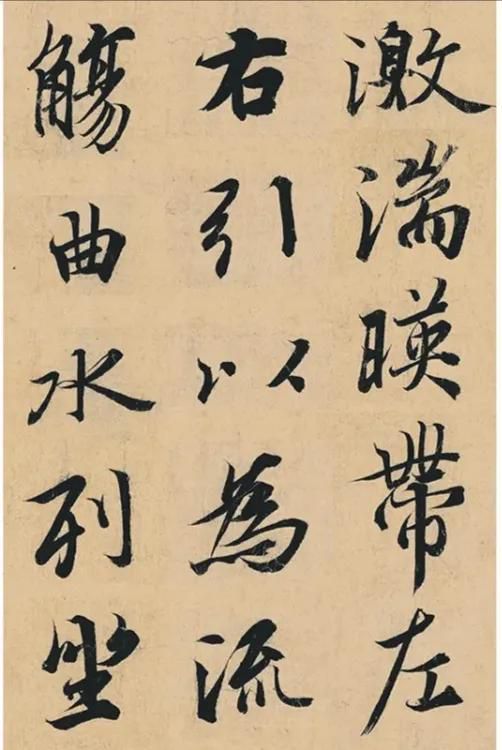 激湍暎帶左
右引以為流
觴曲水列坐